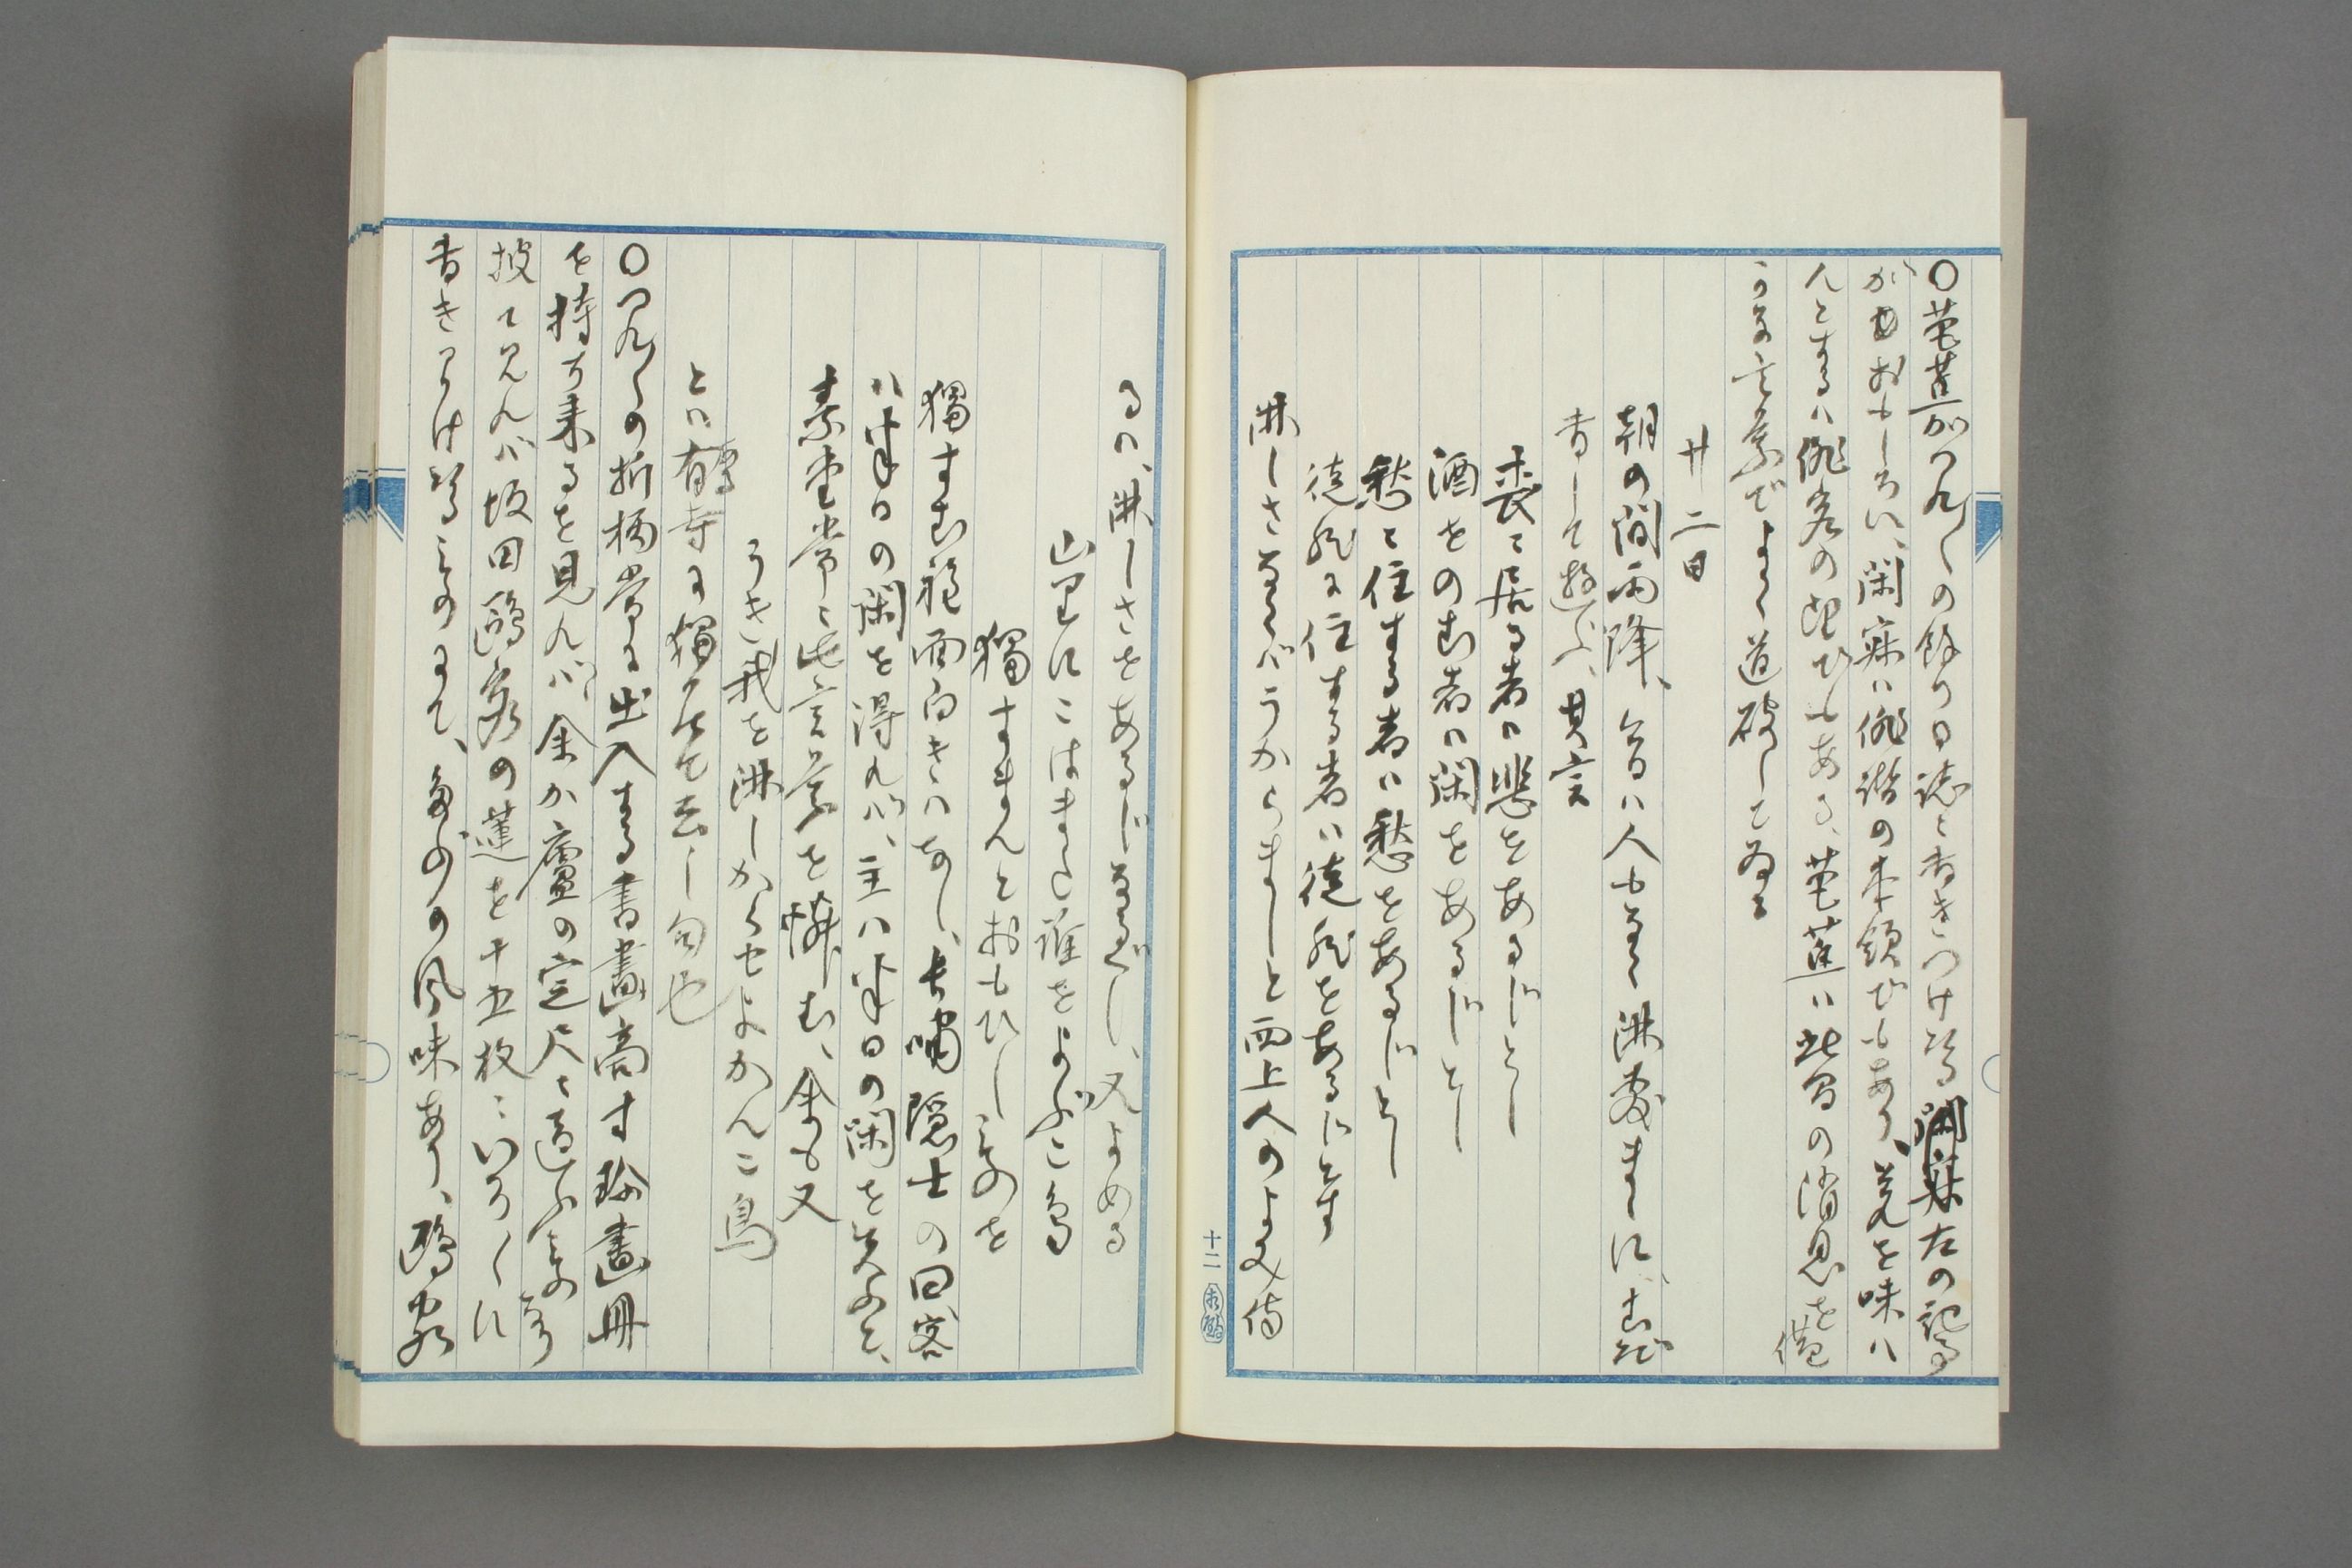 ○芭蕉がつれ〴〵の餘り日誌に書きつけ置る閑寐左の記事
がおもしろい、閑寐は俳諧の本領でもあり、夫を味ハ
んとするは俳客の理ひもある、芭蕉は此間の消息を僅
かな言葉でよく道破してゐる
廿二日
朝の間雨降、今日は人もなく淋敷まゝに、むだ
書して遊ぶ、其言
喪に居る者は悲をあるじとし
酒をのむ者は閑をあるじとし
愁に住する者は愁をあるじとし
徒然に住する者は徒然をあるじとす
淋しさなくばうからましと西上人のよみ侍
十二
るは、淋しさをあるじなるべし、又よめる
山里にこはまた誰をよぶこ鳥
獨すまんとおもひしものを
獨すむ程面白きはなし、長嘯隠士の曰客
は半日の閑を得れバ、主ハ半日の閑を失ふと、
素堂常に此言葉を憐む、余も又
うき我を淋しからせよかんこ鳥
とは有寺に獨居て云し句也
○つれ〴〵の折柄常に出入する書畫商寸珍畫冊
を持ち来るを見れバ、余が廬の定尺に適ふもの
披て見れバ坂田鷗客の蓮を十五枚にいろ〳〵に
書きつけ置るものにて、多少の風味あり、鷗客